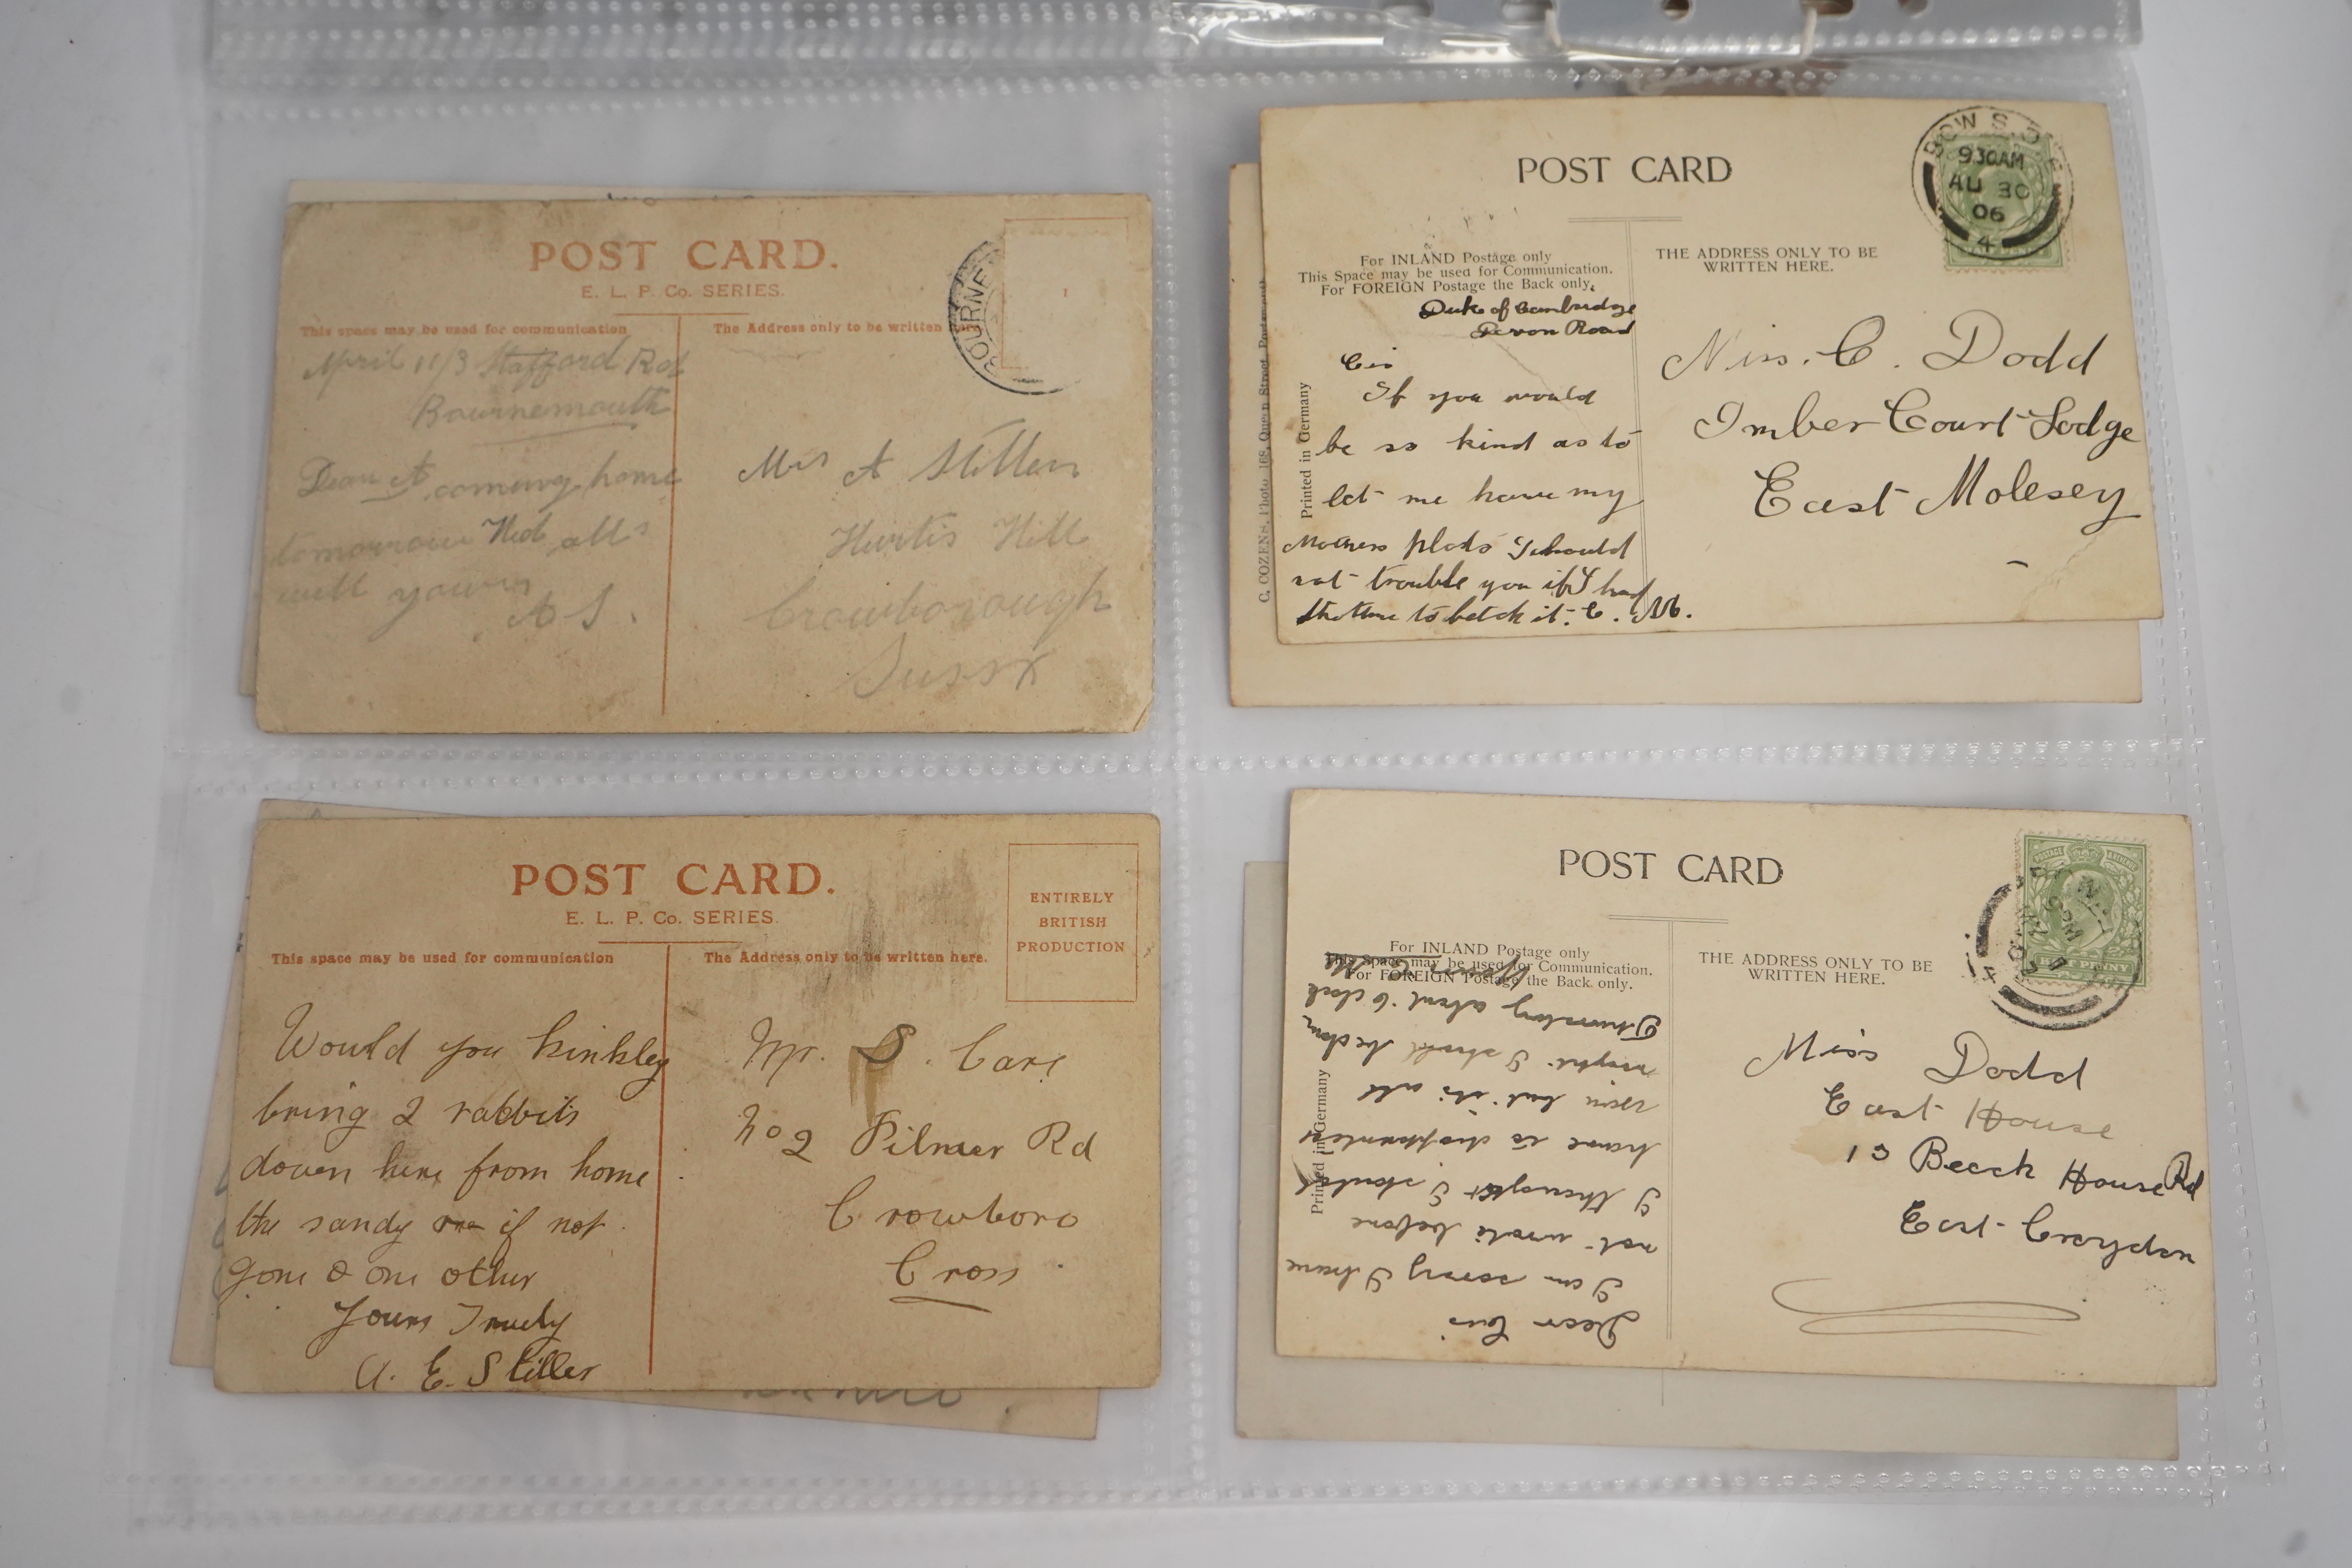 POST CARD.
E. L. P. Co. SERIES.
This space may be used for communication
The Address only to be written
BOURNE
1
April 11/3 Stafford Rd
Bournemouth
Dear A coming home
tomorrow Wed alls
well yours
A S.
Mrs A Stiller
Hurtis Hill
Crowborough
Sussx
POST CARD
BOW S.O
930AM
AU 30
06
4
For INLAND Postage only
This Space may be used for Communication.
For FOREIGN Postage the Back only.
THE ADDRESS ONLY TO BE
WRITTEN HERE.
Printed in Germany
C. COZENS, Photo 168, Queen Street, Portsmouth
Duke of Cambridge
Devon Road
Cis
If you would
be so kind as to
let me have my
Mothers I should
not trouble you if I had
the time to fetch it. C.
Miss. C. Dodd
Imber Court Lodge
East Molesey
POST CARD.
E. L. P. Co. SERIES.
This space may be used for communication
The Address only to be written here.
ENTIRELY
BRITISH
PRODUCTION
Would you kinkley
bring 2 rabbits
down here from home
the sandy one if not
gone & one other
Yours Truely
A. E. Stiller
Mr. S. Care
No 2 Pilmer Rd
Crowboro
Cross
POST CARD
For INLAND Postage only
This Space may be used for Communication.
For FOREIGN Postage the Back only.
THE ADDRESS ONLY TO BE
WRITTEN HERE.
POSTAGE & REVENUE
HALF PENNY
Printed in Germany
Dear Cis
I am sorry I have
not wrote before
I thought I should
have to disappoint
you but its all
right. I shall be down
Thursday about 6 clock
Miss Dodd
East House
13 Beech House Rd
East Croydon